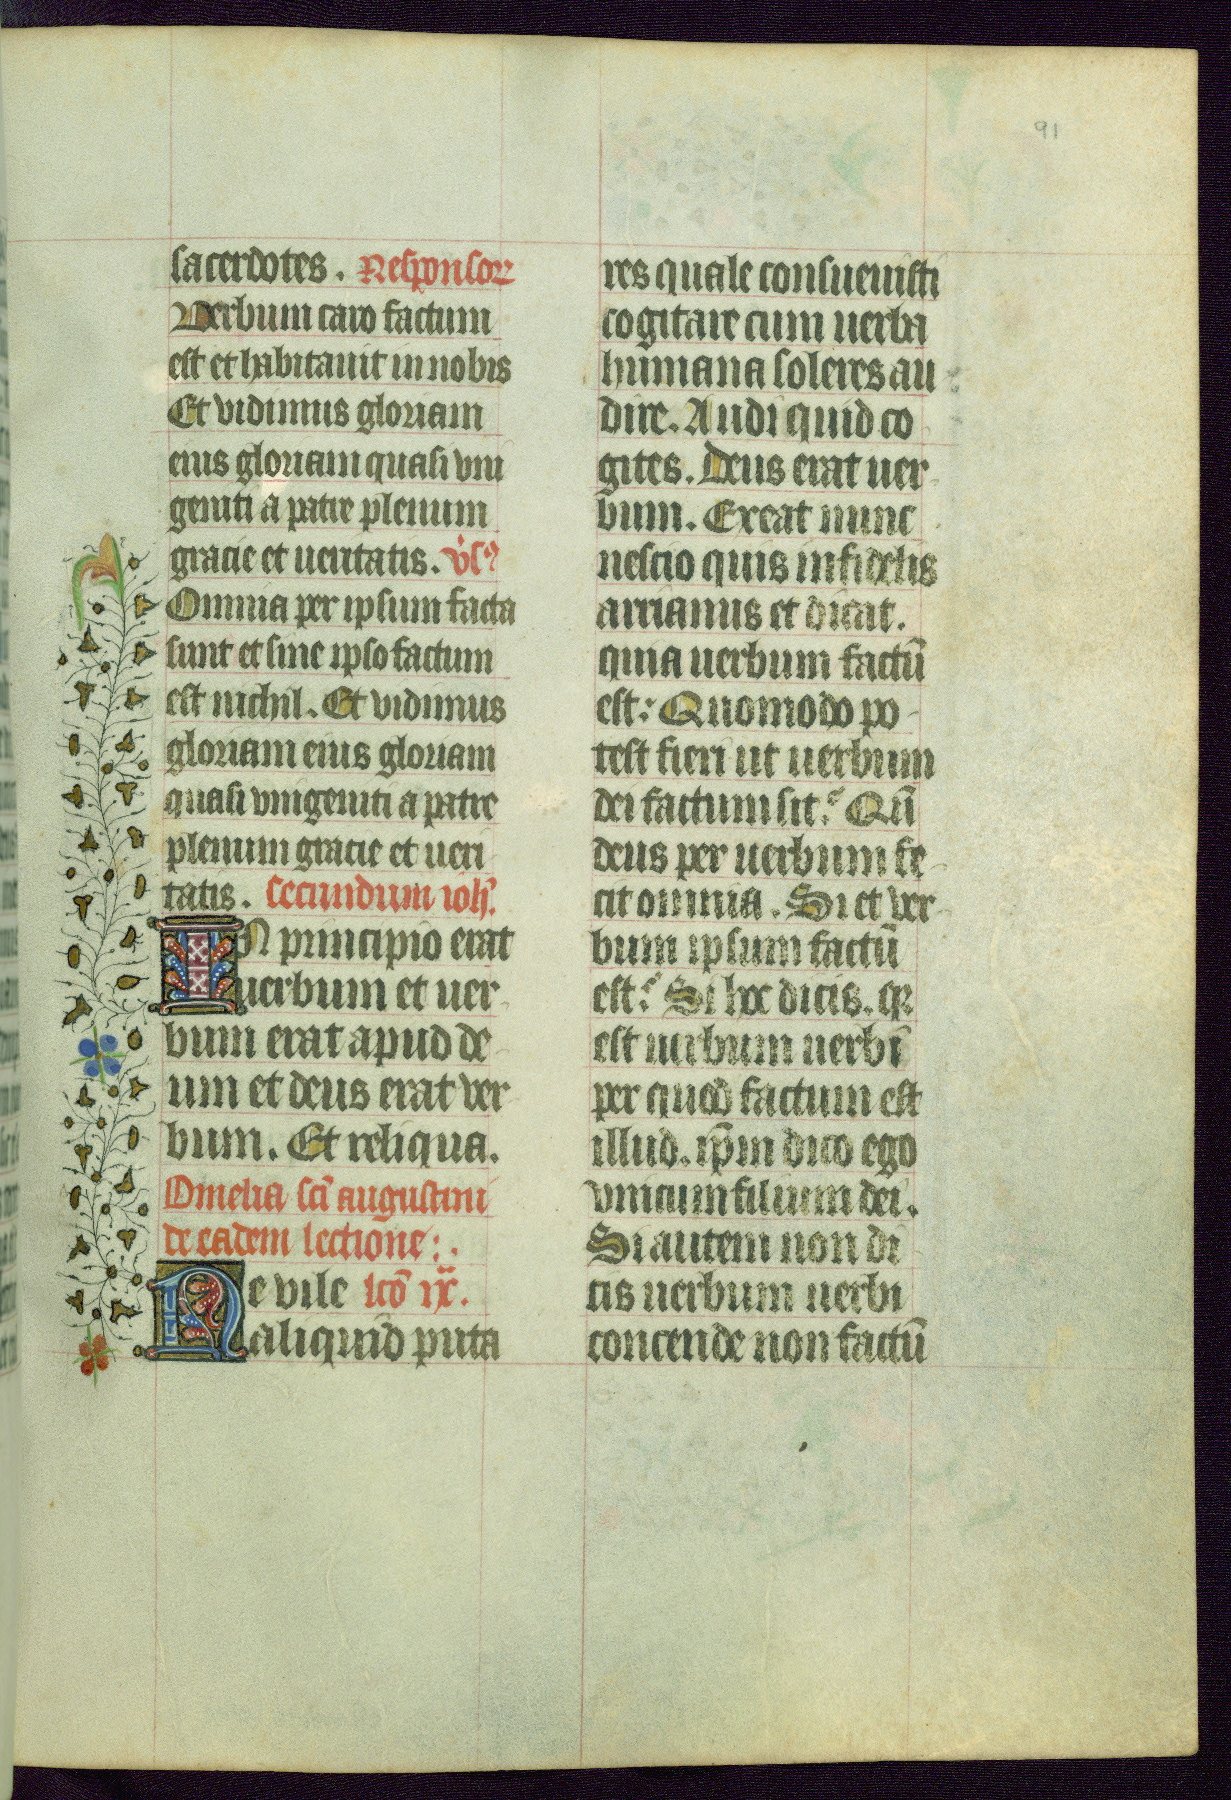 91
sacerdotes. Responsor
Verbum caro factum
est et habitauit in nobis
Et vidimus gloriam
eius gloriam quasi vni
geniti a patre plenum
gracie et ueritatis. v̉s᷒
Omnia per ipsum facta
sunt et sine ipso factum
est nichil. Et vidimus
gloriam eius gloriam
quasi vnigeniti a patre
plenum gracie et ueri
tatis. Secundum ioh̄.
IN principio erat
uerbum et uer-
bum erat apud de-
um et deus erat ver
bum. Et reliqua.
Omelia sc̄i augustini
de eadem lectione:.
Ne vile lc̄o ix.
aliquid puta
res quale consueuisti
cogitare cum uerba
humana soleres au
dire. Audi quid co
gites. Deus erat uer-
bum. Exeat nunc
nescio quis infidelis
arrianus et dicat.
quia uerbum factū
est: Quomodo po-
test fieri ut uerbum
dei factum sit: Qn̄
deus per uerbum fe-
cit omnia. Si et ver-
bum ipsum factū
est: Si hoc dicis. qꝛ
est uerbum uerbi
per quod factum est
illud. ip̄m dico ego
vnicum filium dei.
Si autem non di
cis uerbum uerbi
concende non factū